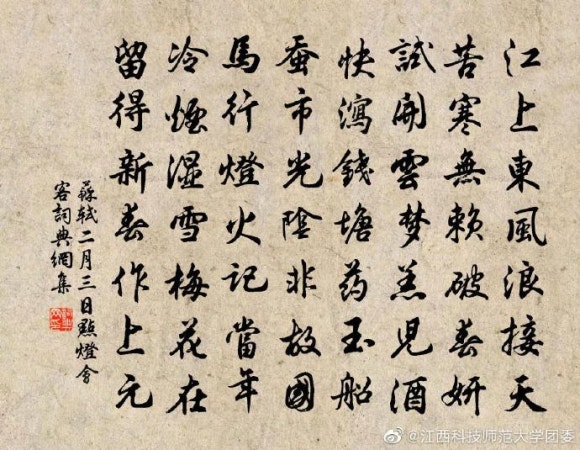 江上東風浪接天
苦寒無賴破春妍
試開雲梦羔兒酒
快瀉錢塘药玉船
蚕市光陰非故國
馬行燈火記當年
冷煙湿雪梅花在
留得新春作上元
蘇軾二月三日點燈會
客詞典網集
@江西科技师范大学团委